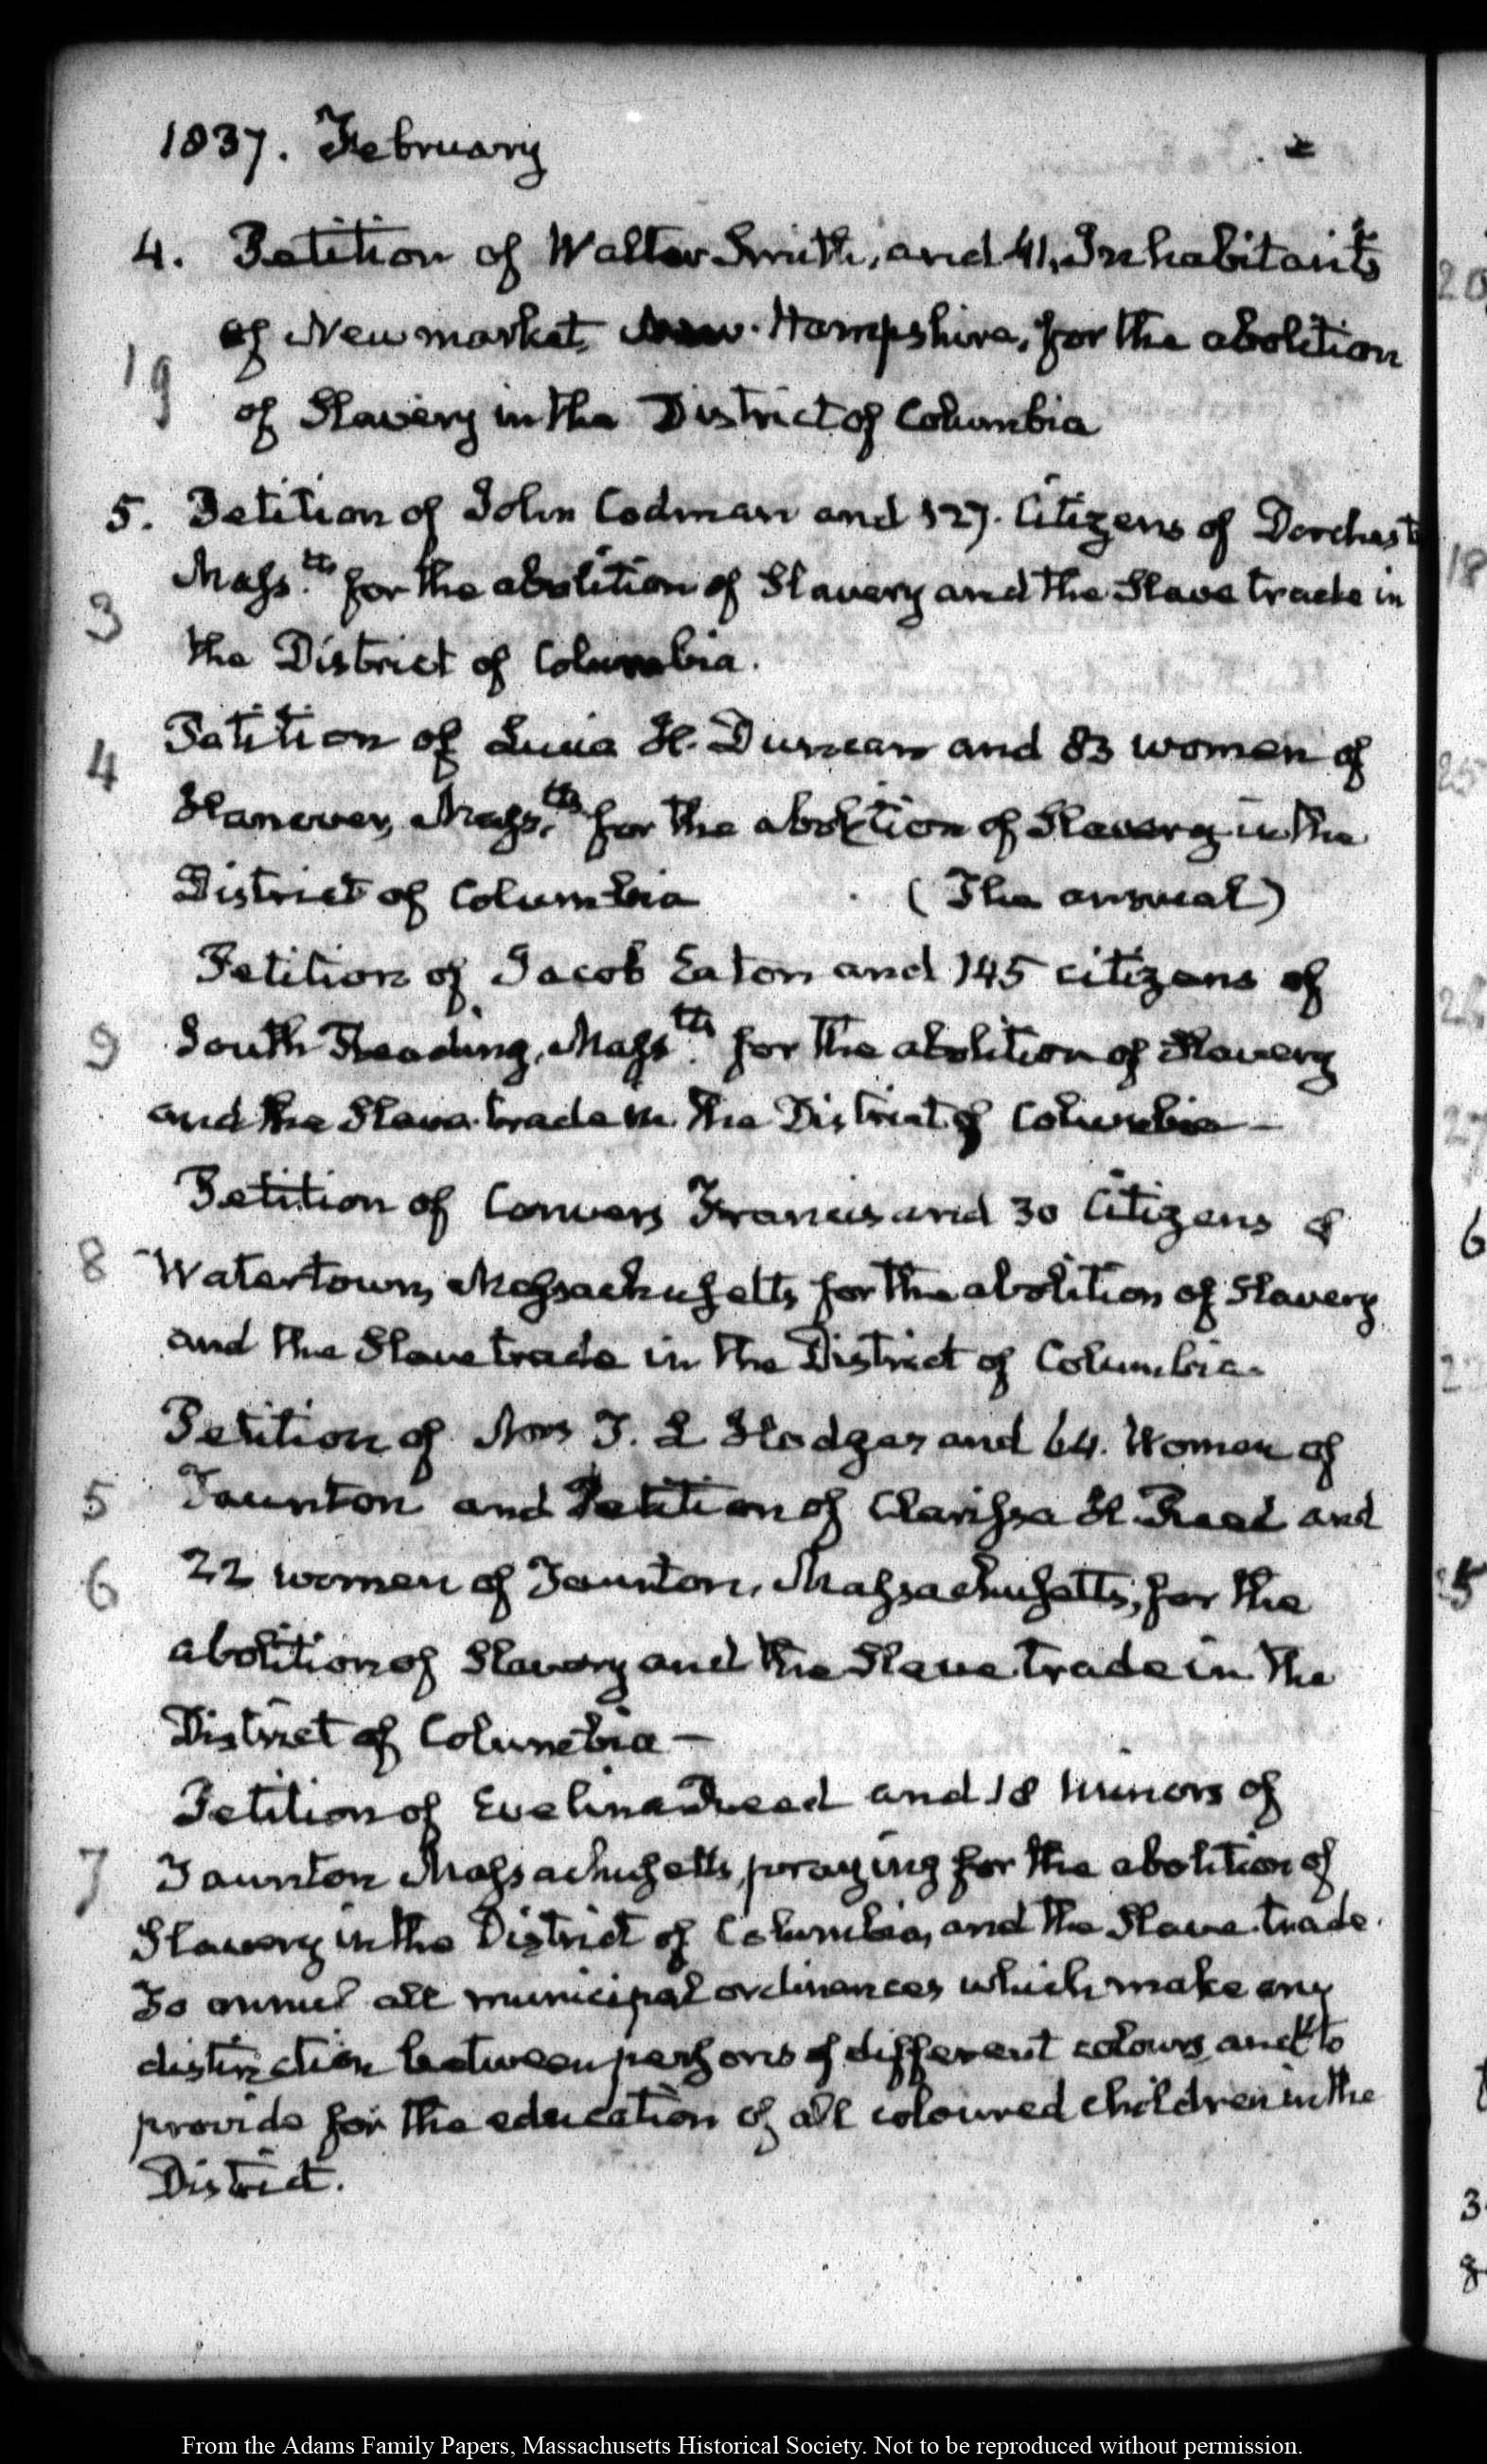 1837. February
4. Petition of Walter Smith, and 41, Inhabitants
of Newmarket, New-Hampshire, for the abolition
19
of Slavery in the District of Columbia
5. Petition of John Codman and 327. Citizens of Dorchest
Mass.tts for the abolition of Slavery and the Slave trade in
3
the District of Columbia.
Petition of H. Duncan and 83 women of
4
Hanover, Mass.tts for the abolition of Slavery in the
District of Columbia (The annual)
Petition of Jacob Eaton and 145 citizens of
9 South Reading, Mass.tts for the abolition of Slavery
and the Slave-trade in the District of Columbia—
Petition of Convers Francis and 30 Citizens of
8 Watertown, Massachusetts, for the abolition of Slavery
and the Slave trade in the District of Columbia.
Petition of Mrs T. L Hodges and 64. Women of
5 Taunton and Petition of Clarissa H. Reed and
6 22 women of Taunton, Massachusetts, for the
abolition of Slavery and the Slave trade in the
District of Columbia—
Petition of Evelina Reed and 18 minors of
7 Taunton Massachusetts, praying for the abolition of
Slavery in the District of Columbia, and the Slave-trade.
To annul all municipal ordinances which make any
distinction between persons of different colours, and to
provide for the education of all coloured children in the
District.
20
18
25
26
27
6
3
8
From the Adams Family Papers, Massachusetts Historical Society. Not to be reproduced without permission.